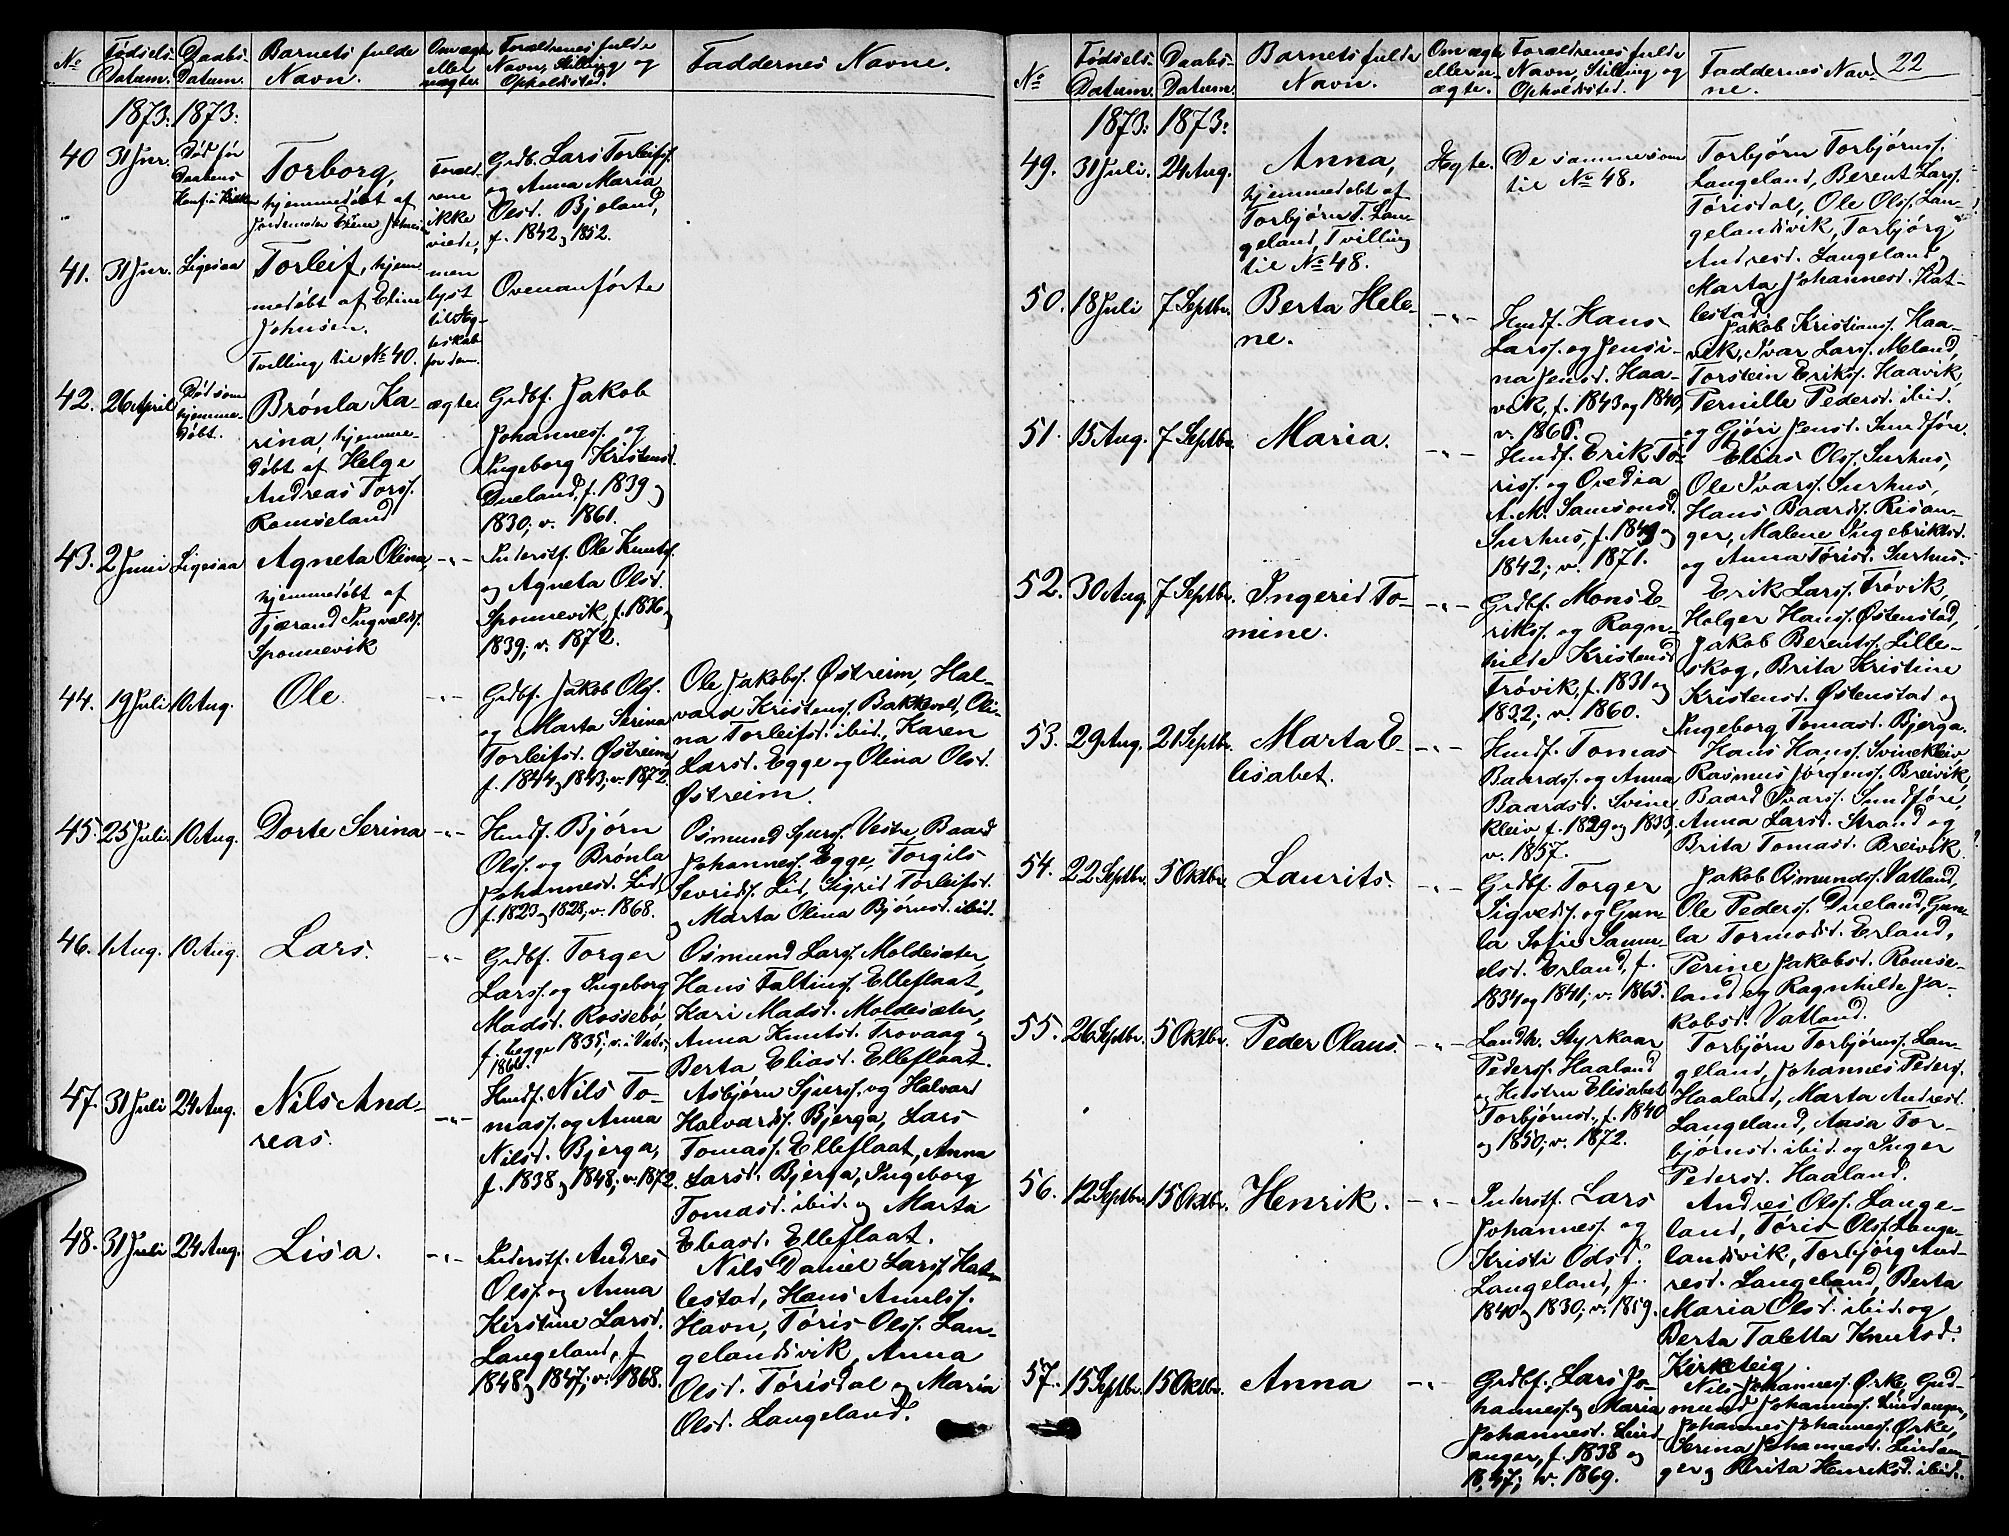 No
Fødsels-
Datum.
Daabs-
Datum.
Barnets fulde
Navn.
Om ægte
eller
uægte.
Forældrenes fulde
Navn, Stilling og
Opholdssted.
Faddernes Navne.
1873: 1873:
40
31 Jnr.
Død før
Daabens
Torborg,
hjemmedøbt af
Foræld-
rene
ikke
viede,
men
lyst
til Æg-
teskab
for dem.
Grdb. Lars Torleifss.
og Anna Maria
Olsd. Bjeland,
f. 1842 og 1852.
41.
31 Jnr.
Ligesaa
Torleif, hjem-
medøbt af Eline
Johnsen.
Tvilling til No 40.
Ovenanførte
42.
26 April
Død som
hjemme-
døbt.
Brønla Ka-
rina, hjemme-
døbt af Helge
Andreas Torss.
Romseland
ægte
Grdbf. Jakob
Johanness. og
Ingeborg Kristensd.
Dueland, f. 1839 og
1830, v. 1861.
43.
2 Juni
Ligesaa
Agneta Olina,
hjemmedøbt af
Tjærand Ingvaldss.
Sponnevik
-"-
Inderstf. Ole Knuts.
og Agneta Olsd.
Sponnevik, f. 1836 og
1839; v. 1872.
44.
19 Juli
10 Aug.
Ole
-"-
Grdbf. Jakob Olss.
og Marta Serina
Torleifsd. Østreim,
f. 1844 og 1843; v. 1872.
Ole Jakobs. Østreim, Hal-
vard Kristenss. Bakkevold, Oli-
na Torleifsd. ibid., Karen
Larsd. Egge og Olina Olsd.
Østreim.
45.
25 Juli
10 Aug.
Dorte Serina
-"-
Husmf. Bjørn
Olss. og Brønla
Johannesd. Lid,
f. 1823 og 1828, v. 1868.
Osmund Sjurss. Vestre, Baard
Johanness. Egge, Torgils
Sevrids. Lid, Sigrid Torleifsd.
og Marta Olina Bjørnsd. ibid.
46.
1 Aug.
10 Aug.
Lars.
-"-
Grdbf. Torger
Larss. og Ingeborg
Madsd. Rossebø
f. begge 1835; v. i Vats,
1860.
Osmund Larss. Moldesæter,
Hans Faltins. Elleflaat,
Kari Madsd. Moldesæter,
Anna Knutsd. Trovaag og
Berta Eliasd. Elleflaat.
47.
31 Juli
24 Aug.
Nils And-
reas.
-"-
Husmf. Nils To-
mass. og Anna
Nilsd. Bjerga,
f. 1838 og 1848; v. 1872.
Asbjørn Sjurss. og Halvard
Halvards. Bjerga, Lars
Tomass. Elleflaat, Anna
Larsd. Bjerga, Ingeborg
Tomasd. ibid. og Marta
Eliasd. Elleflaat.
48.
31 Juli
24 Aug.
Lisa.
-"-
Inderstf. Andres
Olss. og Anna
Kirstine Larsd.
Langeland, f.
1848 og 1847; v. 1868.
Nils Daniel Larss. Hat-
lestad, Hans Amlss.
Havn, Tøris Olss. Lan-
gelandsvik, Anna
Olsd. Tørisdal og Maria
Olsd. Langeland.
No
Fødsels-
Datum.
Daabs-
Datum.
Barnets fulde
Navn.
Om ægte
eller u-
ægte.
Forældrenes fulde
Navn, Stilling og
Opholdssted.
Faddernes Nav-
ne.
22
1873: 1873:
49.
31 Juli.
24 Aug.
Anna,
hjemmedøbt af
Torbjørn T. Lan-
geland, Tvilling
til No 48.
Ægte.
De samme som
til No 48.
Torbjørn Torbjørnss.
Langeland, Berent Larss.
Tørisdal, Ole Olss. Lan-
gelandsvik, Torbjørg
Andresd. Langeland,
Marta Johannesd. Hat-
lestad.
50.
18 Juli
7 Septbr.
Berta Hele-
ne.
-"-
Husmf. Hans
Larss. og Jensi-
na Jensd. Haa-
vik, f. 1843 og 1840,
v. 1866.
Jakob Kristians. Haa-
vik, Ivar Larss. Meland,
Torstein Erikss. Haavik,
Pernille Pedersd. ibid.
og Gjøri Jensd. Sundføre.
51.
15 Aug.
7 Septbr.
Maria.
-"-
Husmf. Erik Tø-
riss. og Ovedia
A. M. Samsonsd.
Surhus, f. 1849 og
1842; v. 1871.
Elias Olss. Surhus,
Ole Ivarss. Surhus,
Hans Baards. Risan-
ger, Malene Ingebriktsd.
og Anna Tørisd. Surhus.
52.
30 Aug.
7 Septbr.
Ingerid To-
mine.
-"-
Grdbf. Mons E-
rikss. og Ragn-
hilde Kristensd.
Trøvik, f. 1831 og
1832; v. 1860.
Erik Larss. Trøvik,
Holger Hanss. Østenstad,
Jakob Berentss. Lille-
skog, Brita Kristine
Kristensd. Østenstad og
Ingeborg Tomasd. Bjerga.
53.
29 Aug.
21 Septbr.
Marta E-
lisabet.
-"-
Husmf. Tomas
Baardss. og Anna
Baardsd. Svine-
kleiv f. 1829 og 1833,
v. 1857.
Hans Hanss. Svinekleiv,
Rasmus Jørgenss. Breivik,
Baard Ivarss. Sundføre,
Anna Larsd. Strand og
Brita Tomasd. Breivik.
54.
22 Septbr.
5 Oktbr.
Laurits.
-"-
Grdbf. Torger
Sigvedss. og Gun-
la Sofie Samu-
elsd. Erland, f.
1834 og 1841; v. 1865.
Jakob Osmundss. Vatland,
Ole Pederss. Dueland, Gun-
la Tormodsd. Erland,
Perine Jakobsd. Romse-
land og Ragnhilde Ja-
kobsd. Vatland.
55.
26 Septbr.
5 Oktbr.
Peder Olaus.
-"-
Landh. Styrkaar
Pederss. Haaland
og Hustru Elisabet
Torbjørnsd., f. 1840
og 1850; v. 1872.
Torbjørn Torbjørnss. Lan-
geland, Johannes Pederss.
Haaland, Marta Andresd.
Langeland, Aasa Tor-
bjørnsd. ibid. og Inger
Pedersd. Haaland.
56.
12 Septbr.
15 Oktbr.
Henrik.
-"-
Inderstf. Lars
Johanness. og
Kristi Odsd.
Langeland, f.
1840 og 1830; v. 1859.
Andres Olss. Lange-
land, Tøris Olss. Lange-
landsvik, Torbjørg And-
resd. Langeland, Berta
Maria Olsd. ibid. og
Berta Taletta Knutsd.
Kirketeig.
57.
15 Septbr.
15 Oktbr.
Anna
-"-
Grdbf. Lars Jo-
hanness. og Maria
Johannesd. Lind-
anger, f. 1838 og
1847; v. 1869.
Nils Johanness. Ørke, Gud-
mund Johanness. Lindanger,
Johannes Johanness. Ørke,
Serina Johannesd. Lindan-
ger og Brita Henriksd. ibid.